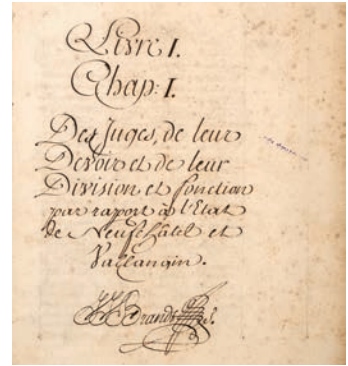 Livre I.
Chap: I.
Des Juges, de leur
Devoir et de leur
Division et fonction
par raport à l'Etat
de Neufchatel et
Vallangin.
Brandt